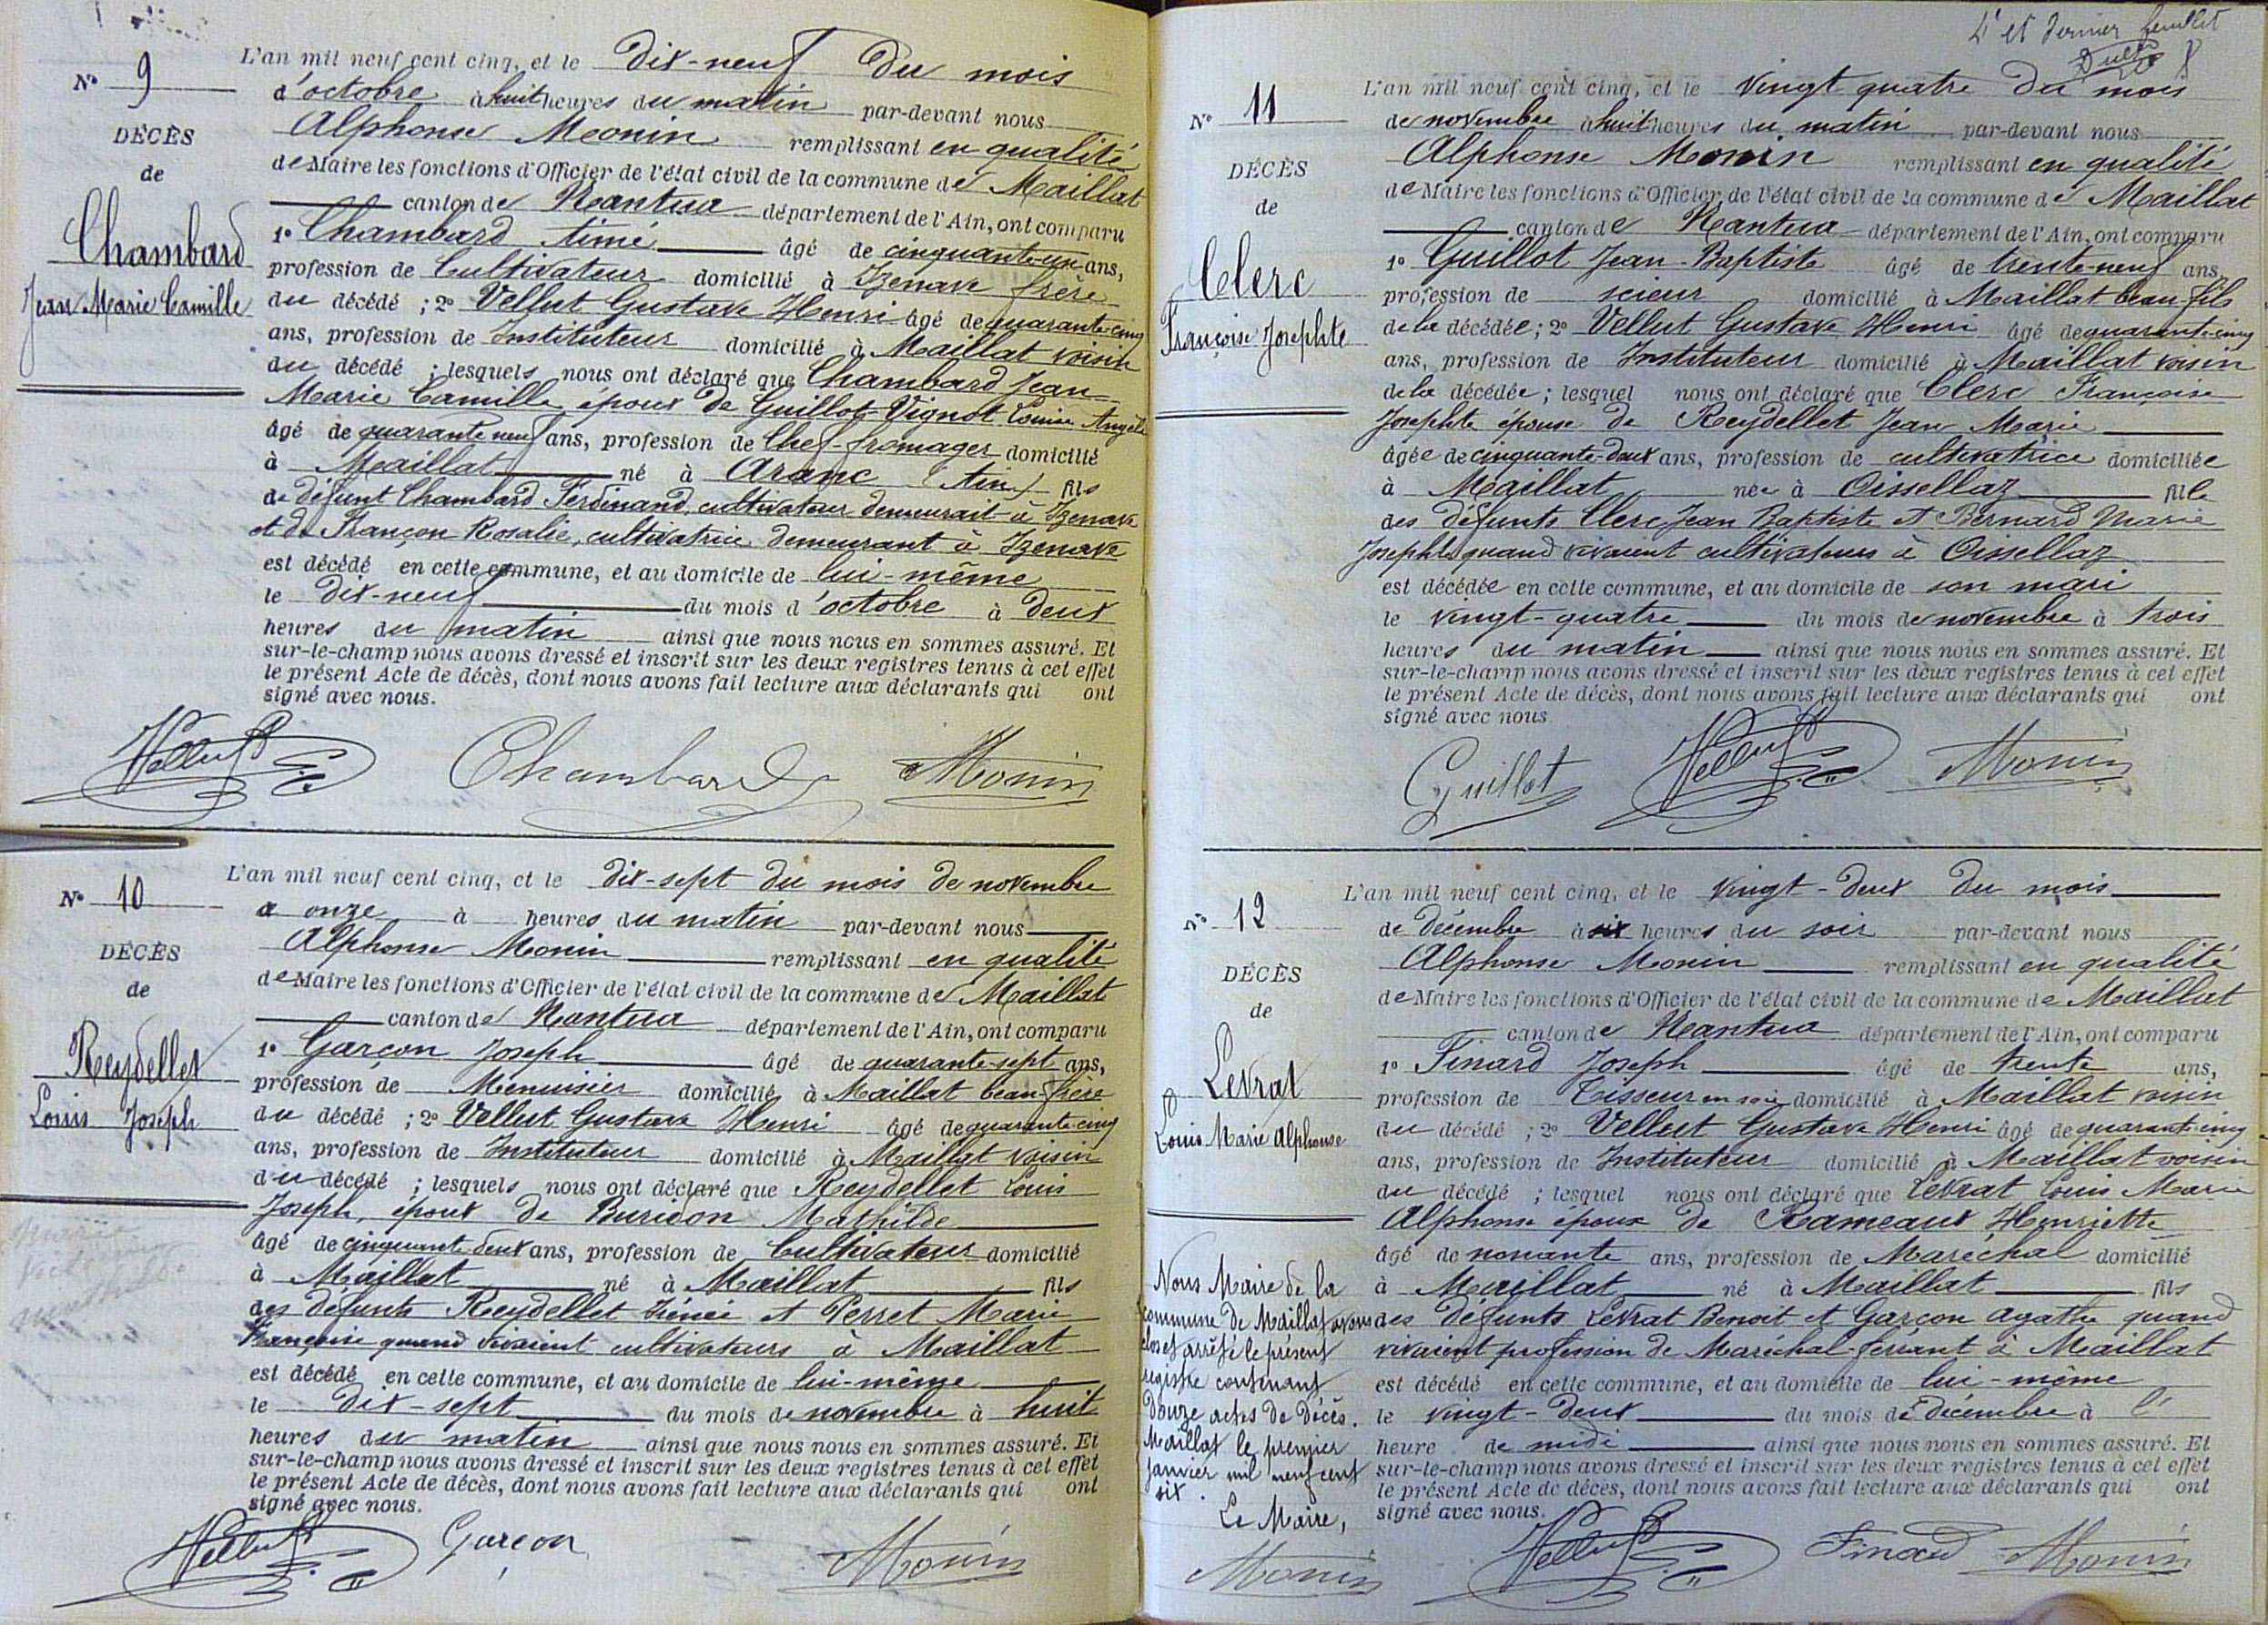 N° 9
DÉCÈS
de
Chambard
Jean Marie Camille
L'an mil neuf cent cinq, et le dix-neuf du mois
d'octobre à huit heures du matin par-devant nous
Alphonse Monin remplissant en qualité
de Maire les fonctions d'Officier de l'état civil de la commune de Maillat
canton de Nantua département de l'Ain, ont comparu
1° Chambard Aimé âgé de cinquante-un ans,
profession de Cultivateur domicilié à Izenave frère
du décédé ; 2° Vellut Gustave Henri âgé de quarante-cinq
ans, profession de Instituteur domicilié à Maillat voisin
du décédé ; lesquels nous ont déclaré que Chambard Jean
Marie Camille époux de Guillot-Vignot Louise Angèle
âgé de quarante neuf ans, profession de Chef-fromager domicilié
à Maillat né à Aranc (Ain) fils
de défunt Chambard Ferdinand, cultivateur demeurait à Izenave
et de Françon Rosalie, cultivatrice demeurant à Izenave
est décédé en cette commune, et au domicile de lui-même
le dix-neuf du mois d'octobre à deux
heures du matin ainsi que nous nous en sommes assuré. Et
sur-le-champ nous avons dressé et inscrit sur les deux registres tenus à cet effet
le présent Acte de décès, dont nous avons fait lecture aux déclarants qui ont
signé avec nous.
Vellut Chambard Monin
N° 10
DÉCÈS
de
Reydellet
Louis Joseph
L'an mil neuf cent cinq, et le dix-sept du mois de novembre
a onze à heures du matin par-devant nous
Alphonse Monin remplissant en qualité
de Maire les fonctions d'Officier de l'état civil de la commune de Maillat
canton de Nantua département de l'Ain, ont comparu
1° Garçon Joseph âgé de quarante-sept ans,
profession de Menuisier domicilié à Maillat beau-frère
du décédé ; 2° Vellut Gustave Henri âgé de quarante-cinq
ans, profession de Instituteur domicilié à Maillat voisin
du décédé ; lesquels nous ont déclaré que Reydellet Louis
Joseph, époux de Buridon Mathilde
âgé de cinquante-deux ans, profession de Cultivateur domicilié
à Maillat né à Maillat fils
des défunts Reydellet Irénée et Perret Marie
Françoise quand vivaient cultivateurs à Maillat
est décédé en cette commune, et au domicile de lui-même
le dix-sept du mois de novembre à huit
heures du matin ainsi que nous nous en sommes assuré. Et
sur-le-champ nous avons dressé et inscrit sur les deux registres tenus à cet effet
le présent Acte de décès, dont nous avons fait lecture aux déclarants qui ont
signé avec nous.
Vellut Garçon Monin
4e et dernier feuillet
N° 11
DÉCÈS
de
Clerc
Françoise Josephte
L'an mil neuf cent cinq, et le vingt quatre du mois
de novembre à huit heures du matin par-devant nous
Alphonse Monin remplissant en qualité
de Maire les fonctions d'Officier de l'état civil de la commune de Maillat
canton de Nantua département de l'Ain, ont comparu
1° Guillot Jean-Baptiste âgé de trente-neuf ans,
profession de scieur domicilié à Maillat beau-fils
de la décédée ; 2° Vellut Gustave Henri âgé de quarante-cinq
ans, profession de Instituteur domicilié à Maillat voisin
de la décédée ; lesquel nous ont déclaré que Clerc Françoise
Josephte épouse de Reydellet Jean Marie
âgée de cinquante-deux ans, profession de cultivatrice domiciliée
à Maillat née à Oissellaz fille
des défunts Clerc Jean Baptiste et Bernard Marie
Josephte quand vivaient cultivateurs à Oissellaz
est décédée en cette commune, et au domicile de son mari
le vingt-quatre du mois de novembre à trois
heures du matin ainsi que nous nous en sommes assuré. Et
sur-le-champ nous avons dressé et inscrit sur les deux registres tenus à cet effet
le présent Acte de décès, dont nous avons fait lecture aux déclarants qui ont
signé avec nous.
Guillot Vellut Monin
N° 12
DÉCÈS
de
Levrat
Louis Marie Alphonse
L'an mil neuf cent cinq, et le vingt-deux du mois
de décembre à six heures du soir par-devant nous
Alphonse Monin remplissant en qualité
de Maire les fonctions d'Officier de l'état civil de la commune de Maillat
canton de Nantua département de l'Ain, ont comparu
1° Finard Joseph âgé de trente ans,
profession de Tisseur en soie domicilié à Maillat voisin
du décédé ; 2° Vellut Gustave Henri âgé de quarante-cinq
ans, profession de Instituteur domicilié à Maillat voisin
du décédé ; lesquel nous ont déclaré que Levrat Louis Marie
Alphonse époux de Rameaux Henriette
âgé de nonante ans, profession de Maréchal domicilié
à Maillat né à Maillat fils
des défunts Levrat Benoit et Garçon Agathe quand
vivaient profession de Maréchal-ferrant à Maillat
est décédé en cette commune, et au domicile de lui-même
le vingt-deux du mois de décembre à l'
heure de midi ainsi que nous nous en sommes assuré. Et
sur-le-champ nous avons dressé et inscrit sur les deux registres tenus à cet effet
le présent Acte de décès, dont nous avons fait lecture aux déclarants qui ont
signé avec nous.
Vellut Finard Monin
Nous Maire de la
commune de Maillat avons
clos et arrêté le présent
registre contenant
douze actes de décès.
Maillat le premier
janvier mil neuf cent
six.
Le Maire,
Monin